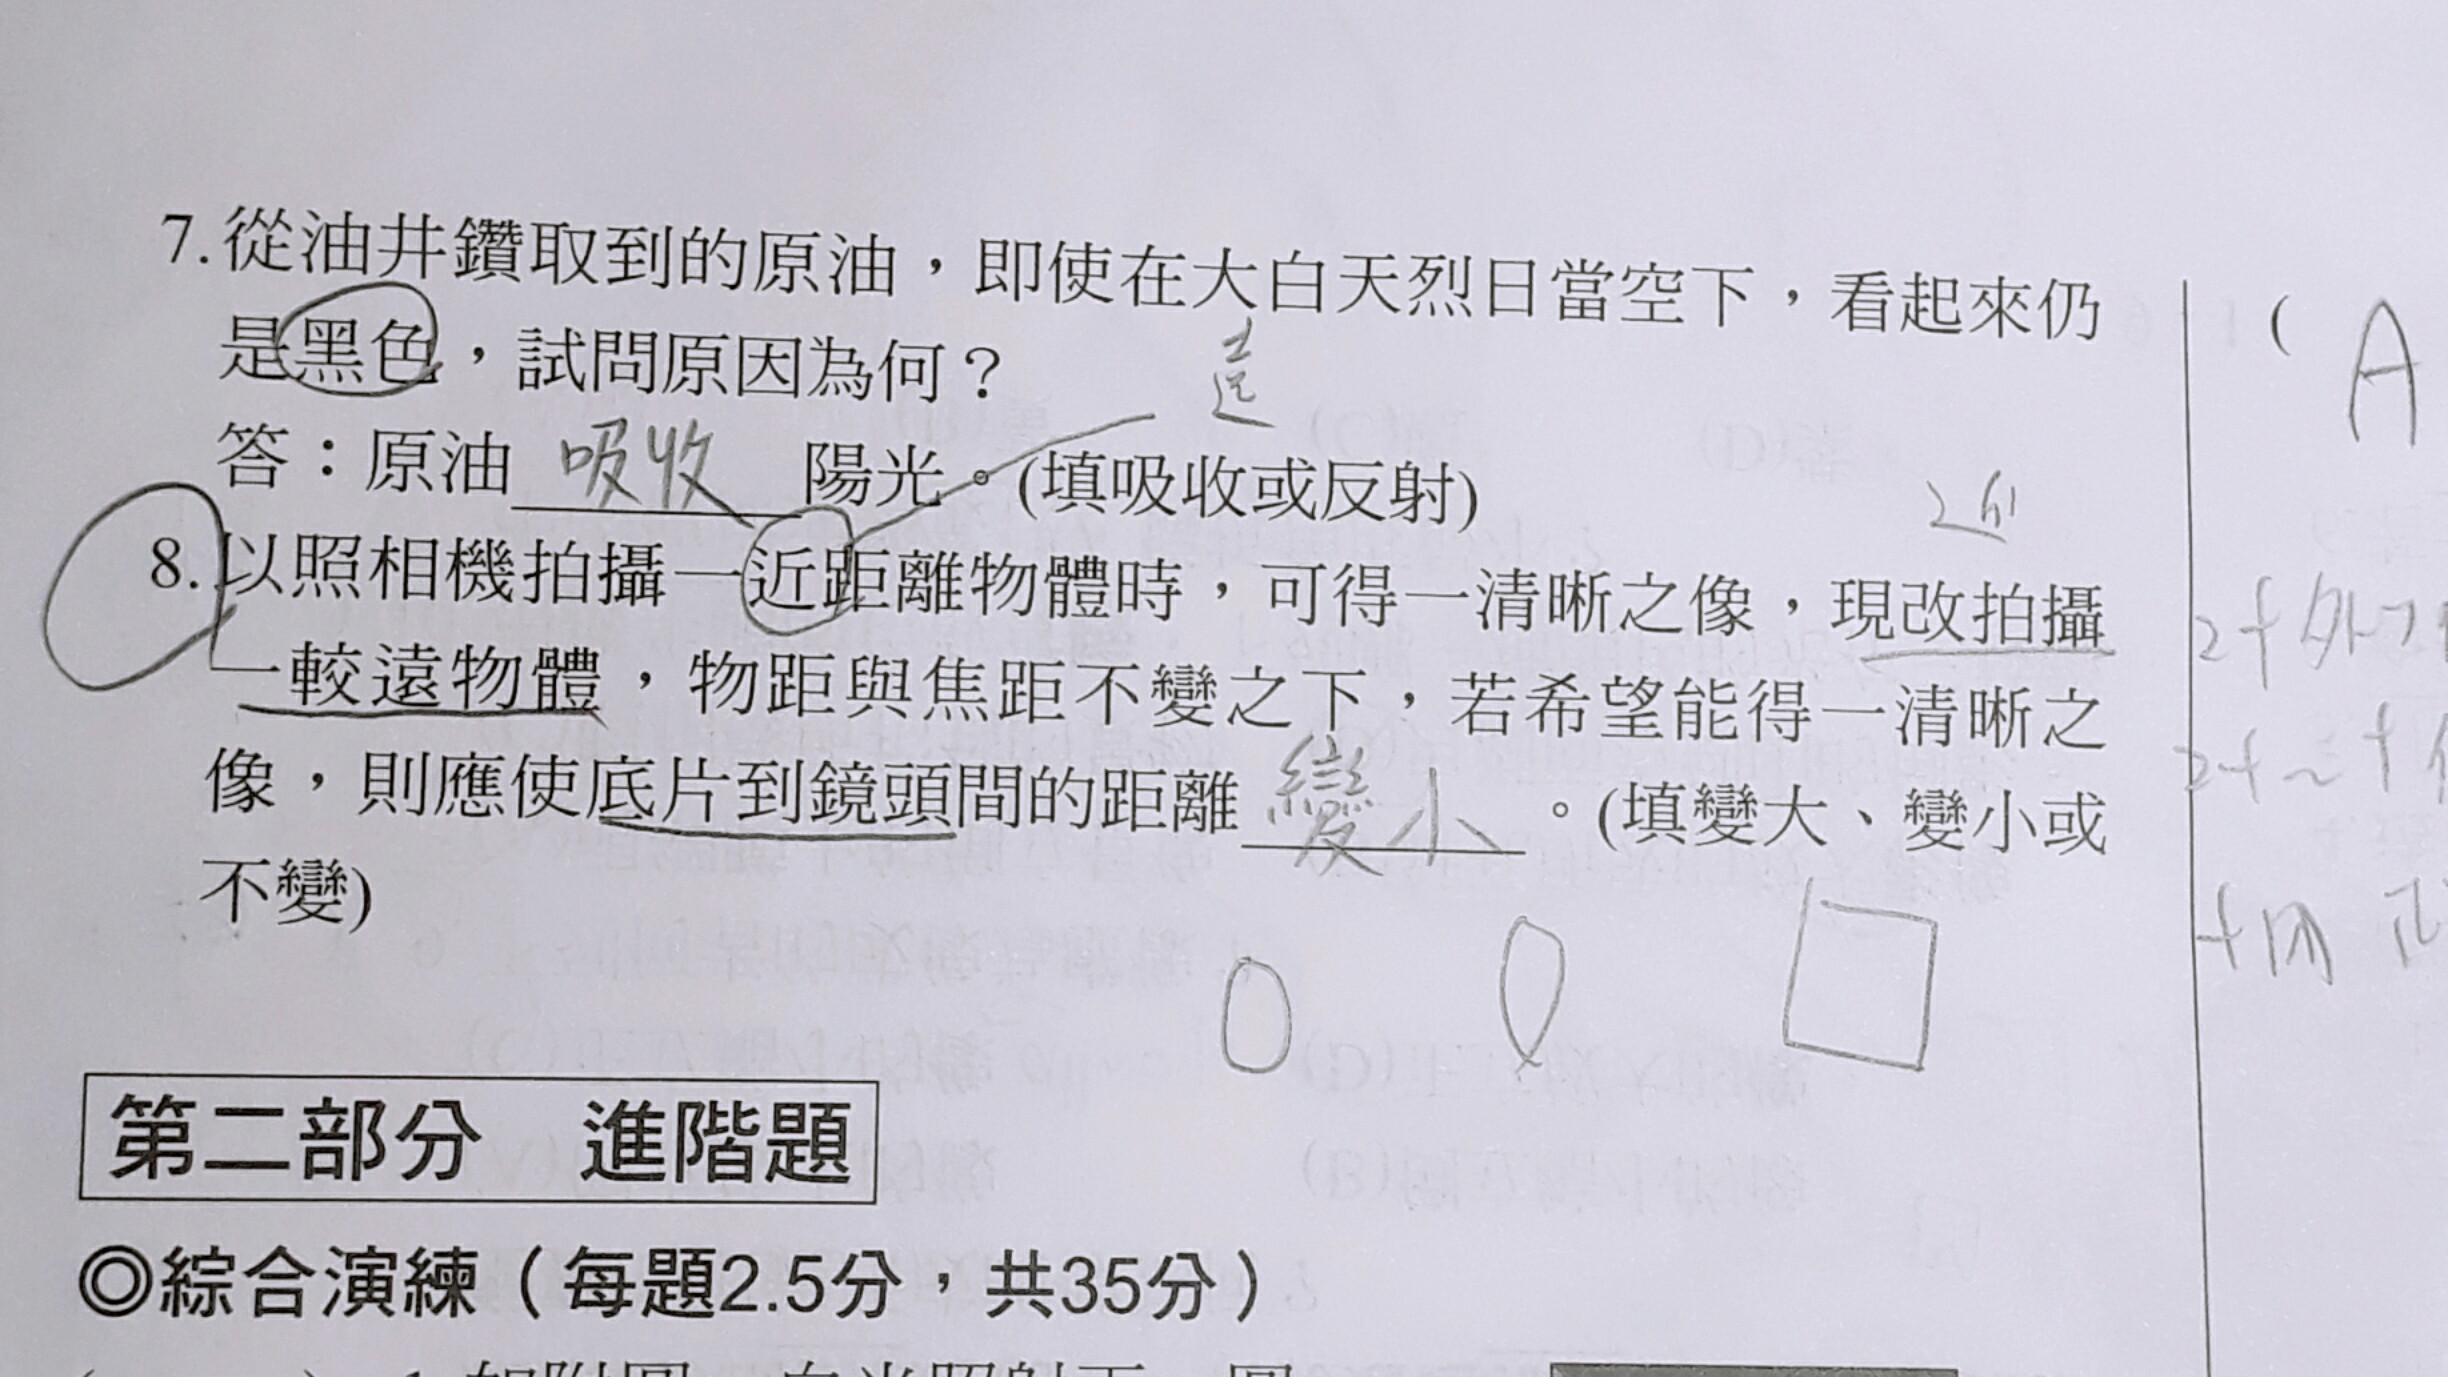 7.從油井鑽取到的原油，即使在大白天烈日當空下，看起來仍
是黑色，試問原因為何？
遠
答：原油 吸收 陽光。(填吸收或反射)
近
8.以照相機拍攝一近距離物體時，可得一清晰之像，現改拍攝
一較遠物體，物距與焦距不變之下，若希望能得一清晰之
像，則應使底片到鏡頭間的距離 變小 。(填變大、變小或
不變)
第二部分 進階題
◎綜合演練（每題2.5分，共35分）
( A
2f外
2f~f
f內 正